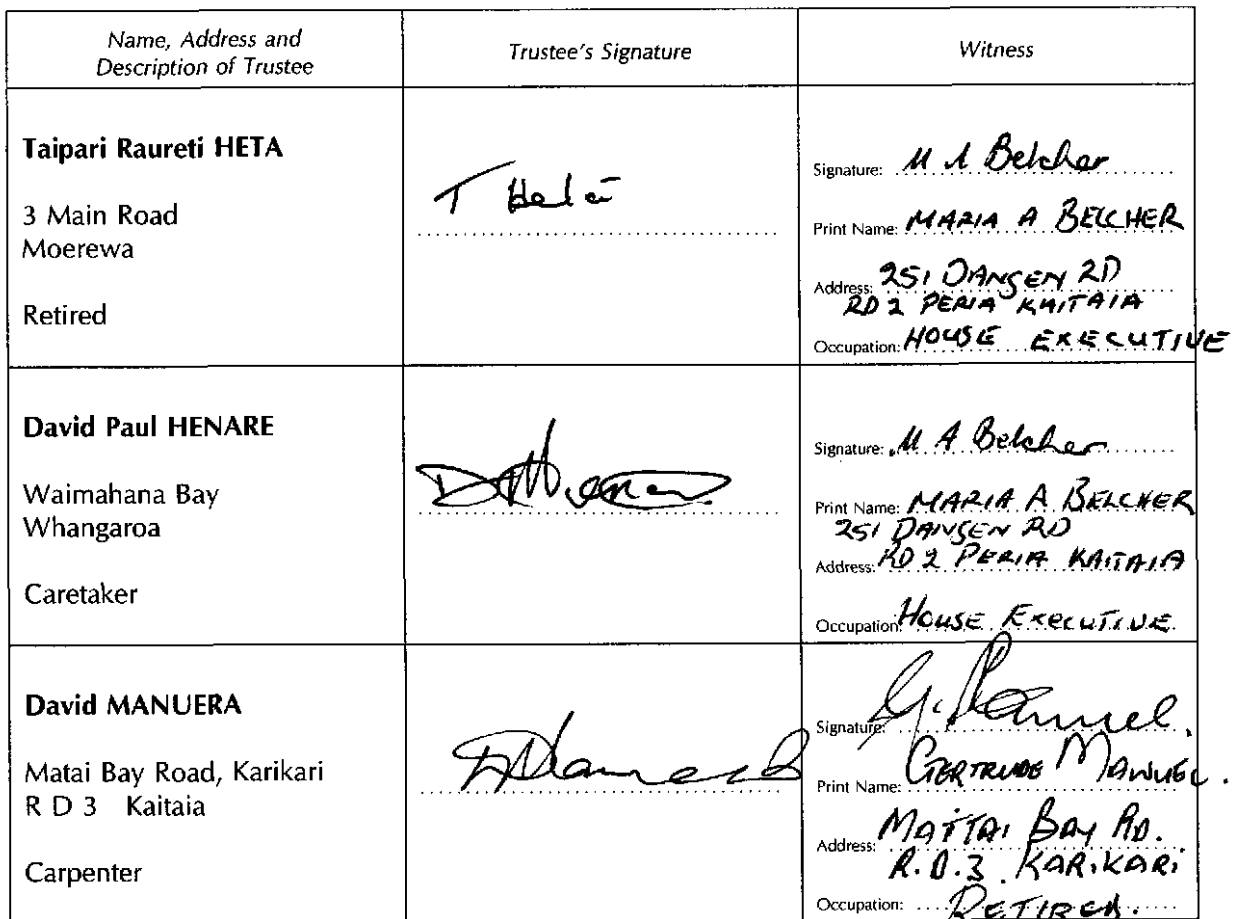 Name, Address and
Description of Trustee
Trustee's Signature
Witness
Taipari Raureti HETA
3 Main Road
Moerewa
Retired
T Heta
Signature: M A Belcher
Print Name: MARIA A BELCHER
Address: 251 DANGEN RD
RD 2 PERIA KAITAIA
Occupation: HOUSE EXECUTIVE
David Paul HENARE
Waimahana Bay
Whangaroa
Caretaker
Signature: M A Belcher
Print Name: MARIA A BELCHER
251 DANGEN RD
Address: RD 2 PERIA KAITAIA
Occupation: HOUSE EXECUTIVE
David MANUERA
Matai Bay Road, Karikari
R D 3 Kaitaia
Carpenter
Signature: G. Manuel.
Print Name: GERTRUDE MANUEL.
Address: MATTAI BAY RD.
R.D.3 KARIKARI
Occupation: RETIRED.